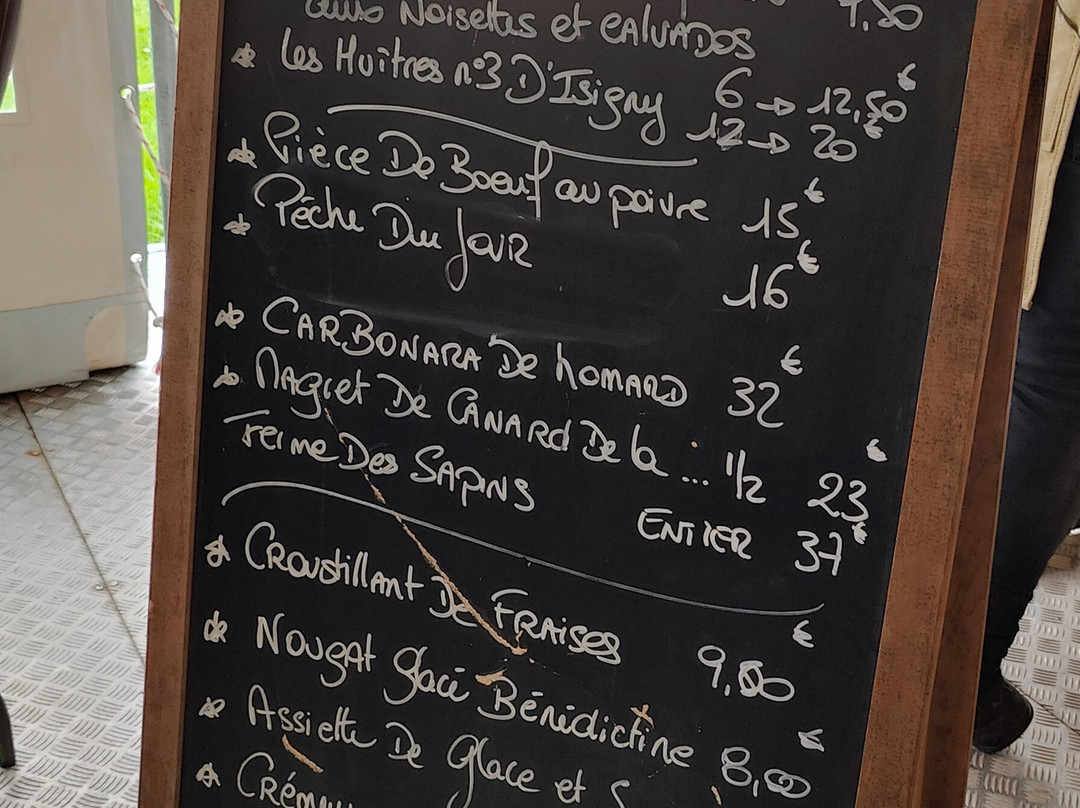 aux Noisettes et CALVADOS
Les Huîtres n°3 D'Isigny 6 → 12,50€
12 → 20€
Pièce De Boeuf au poivre 15€
Pêche Du Jour 16€
CARBONARA De homARD 32€
Magret De CANARd De la ... 1/2 23€
Ferme Des SAPINS ENTIER 37€
CRoustillant De FRAISES 9,00€
Nougat glacé Bénédictine 8,00€
Assiette De Glace et